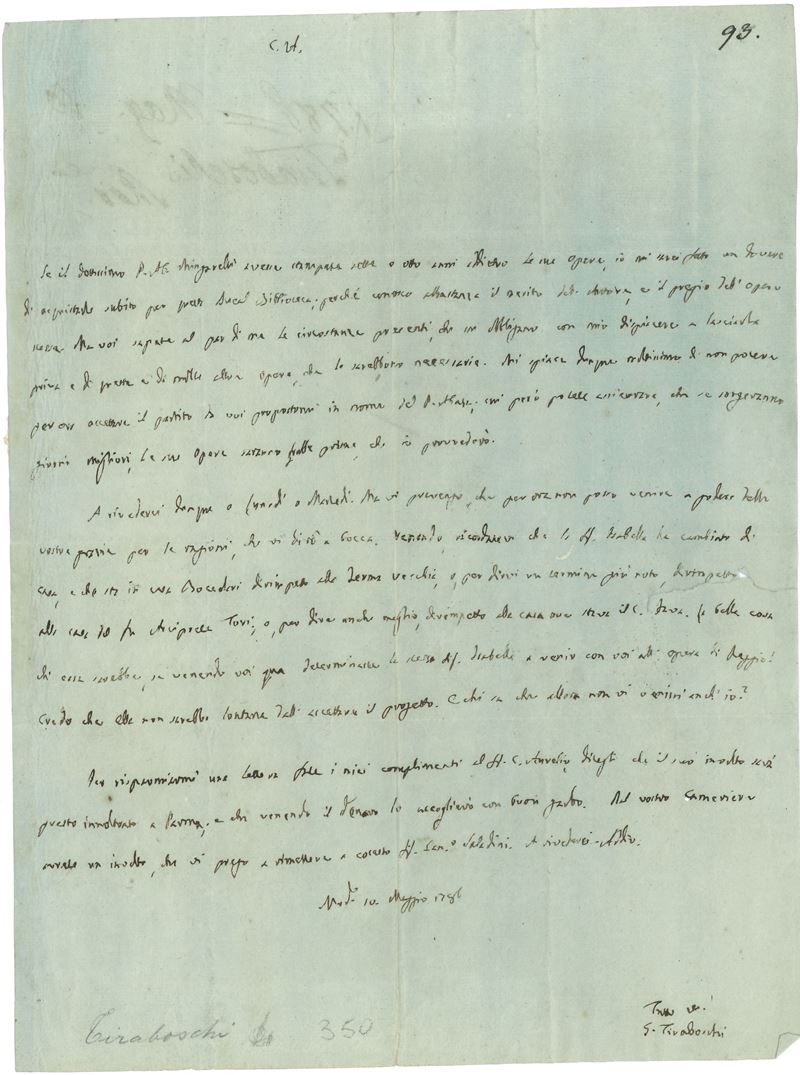 93.
C. A.
Se il dottissimo P. Ab. Mingarelli avesse stampata sette o otto anni addietro la sua opera, io mi sarei fatto un dovere
di acquistarla subito per questa Ducal Biblioteca, perchè conosco abbastanza il merito dell' Autore, e il pregio dell' opera
stessa. Ma voi sapete al par di me le circostanze presenti, che mi obbligano con mio dispiacere a lasciarla
priva e di questa e di molte altre opere, che le sarebbono necessarie. Mi spiace dunque moltissimo di non potere
per ora accettare il partito da voi propostomi in nome del P. Abate; ma però potete assicurarlo, che se sorgeranno
giorni migliori, la sua opera sarà una delle prime, che io provvederò.
A rivederci dunque o Lunedì o Martedì. Ma vi prevengo, che per ora non posso venire a godere delle
vostre grazie per le ragioni, che vi dirò a bocca. Venendo, ricordatevi che la Sig. Isabella ha cambiato di
casa, e che sta in casa Boccaderi dirimpetto alla Zerma vecchia, o, per dirvi un termine più noto, dirimpetto
alla casa del fu Arciprete Tori, o, per dire anche meglio, dirimpetto alla casa ove stava il C. Fava. La bella cosa
che essa sarebbe, se venendo voi qua determinaste la stessa Sig. Isabella a venir con voi all' opera di Reggio!
Credo che ella non sarebbe lontana dall' accettare il progetto. E chi sa che allora non vi venissi anch' io?
Per risparmiarmi una lettera fate i miei complimenti al Sig. C. Aurelio, ditegli che il suo involto sarà
presto inoltrato a Parma, e che venendo il denaro lo accoglierò con buon garbo. Dal vostro Cameriere
avrete un involto, che vi prego a rimettere a cotesto Sig. Can.º Saladini. A rivederci. Addio.
Mod.ª 10. Maggio 1786
Tutto v.º
G. Tiraboschi
Tiraboschi 350